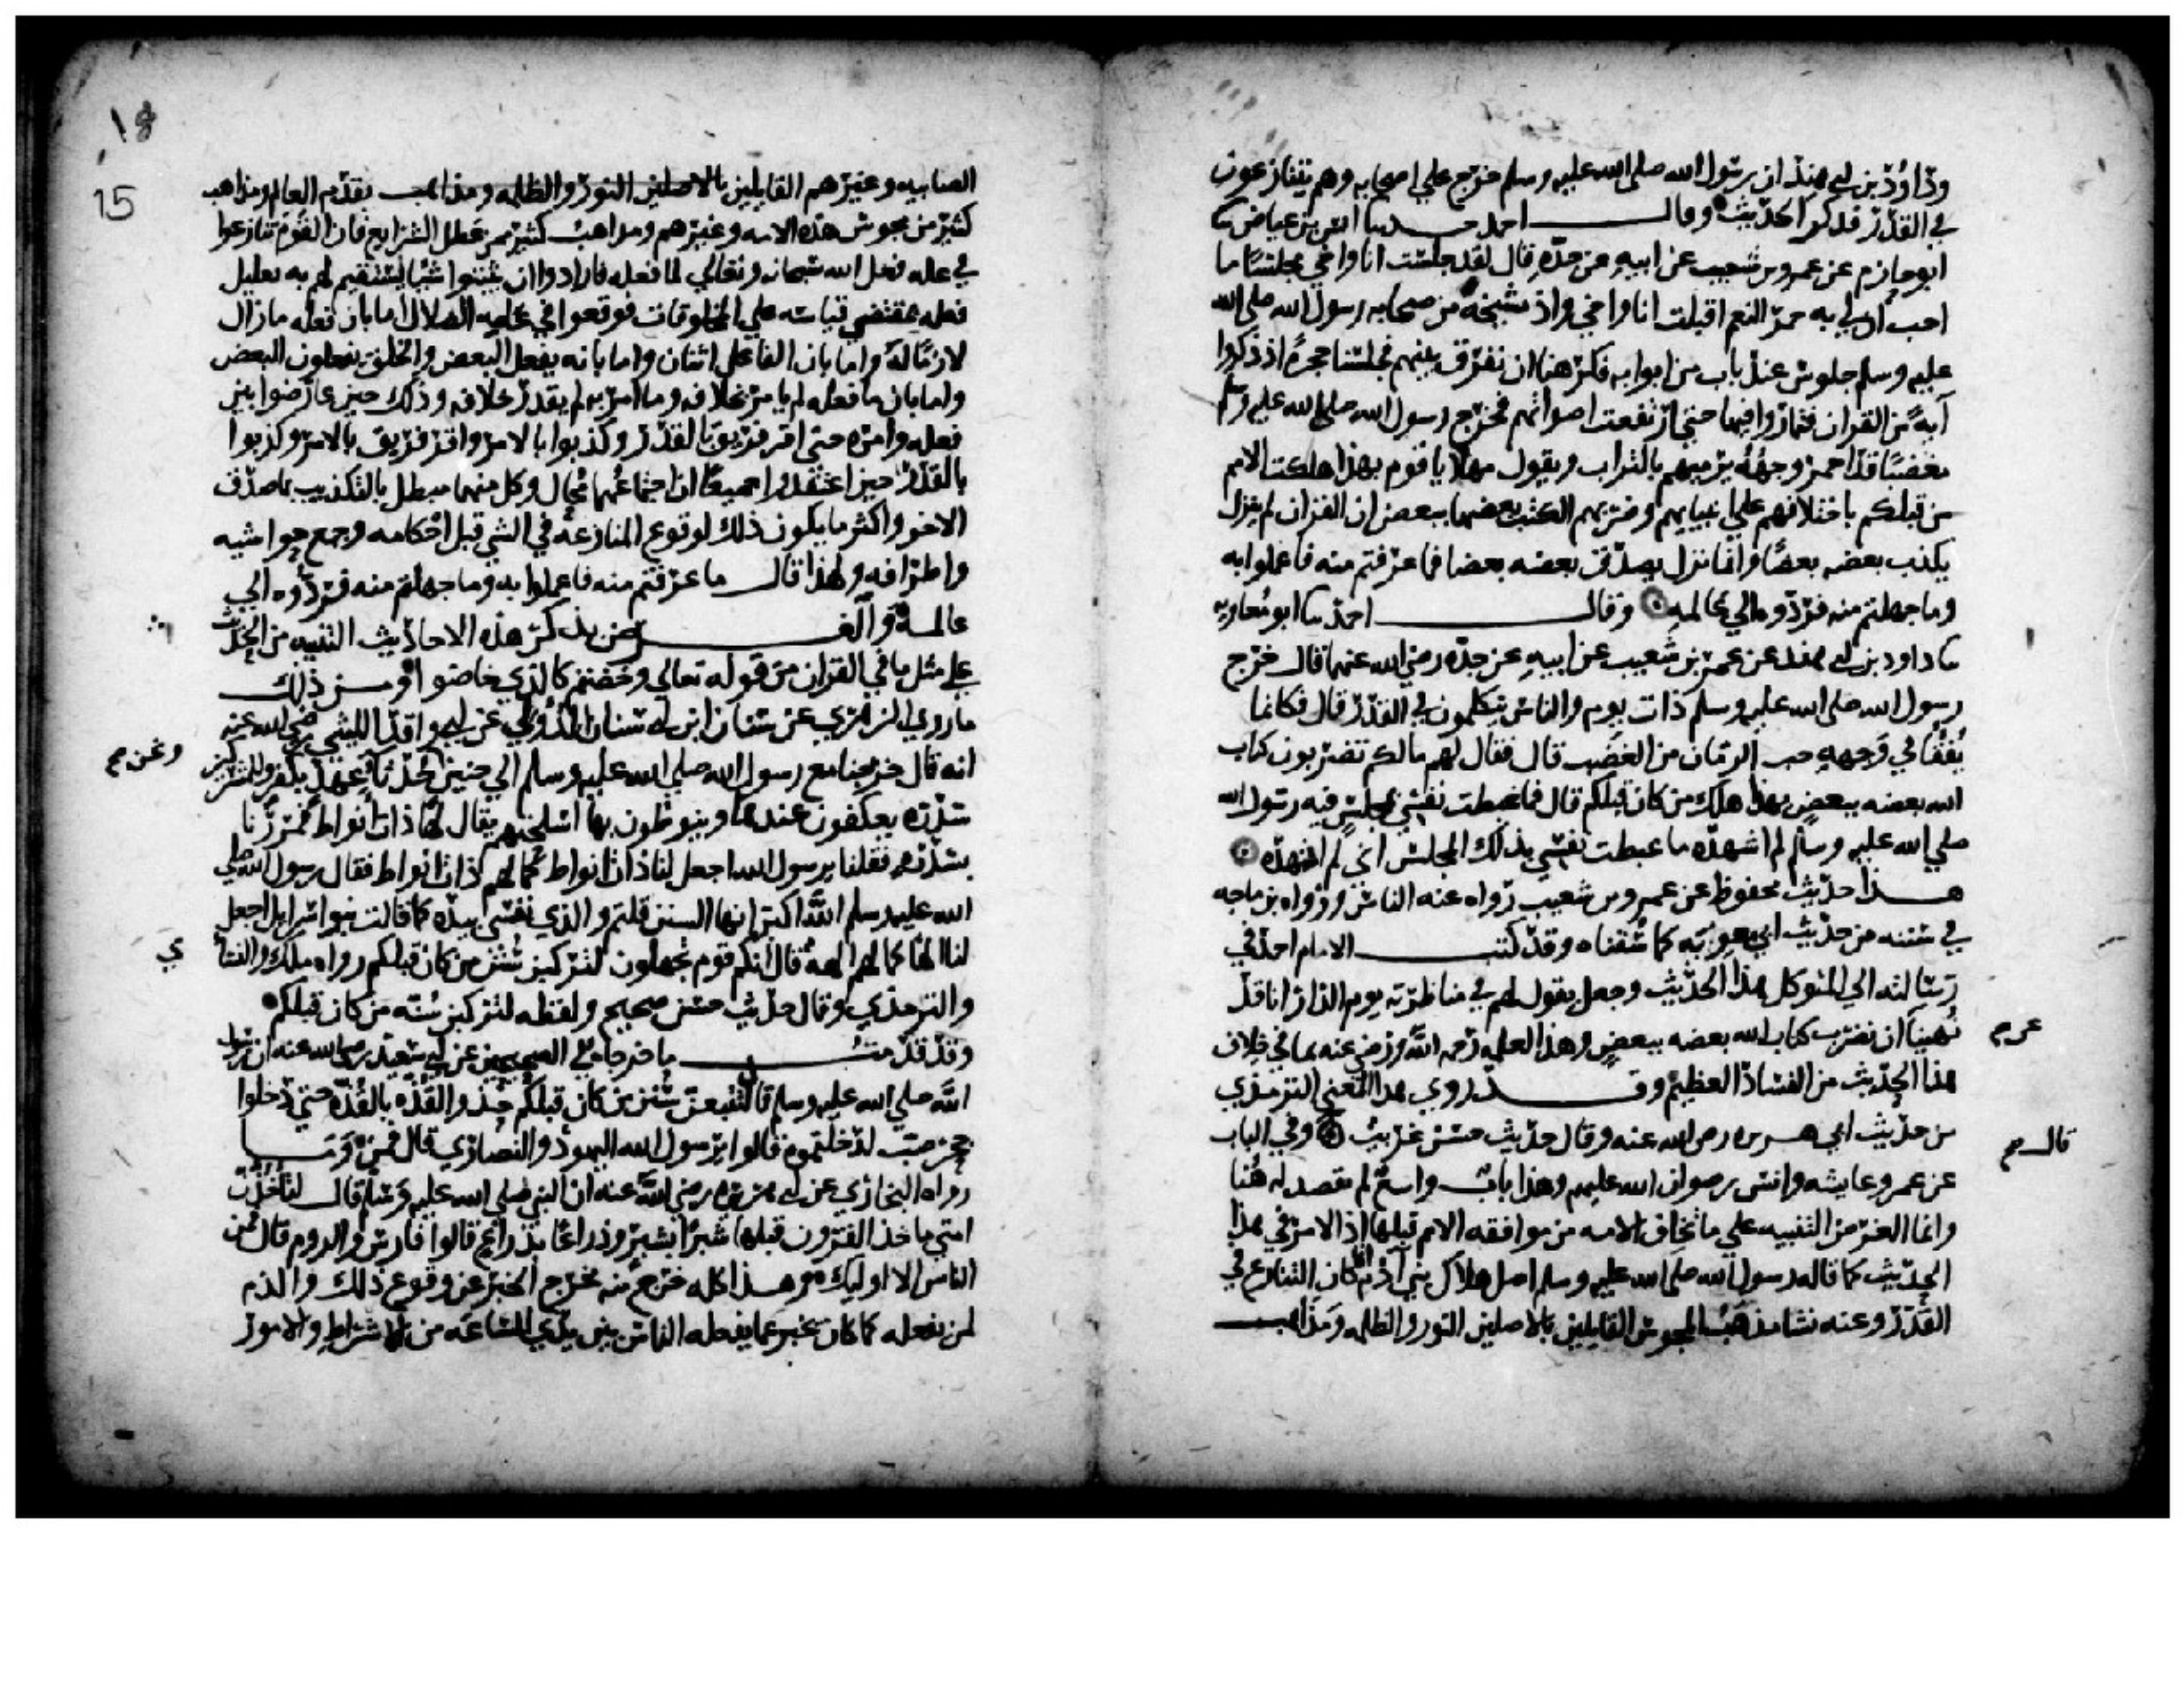 وداود بن ابي هند ان رسول الله صلى الله عليه وسلم خرج علي اصحابه وهم يتنازعون
في القدر فذكر الحديث وقال احمد حدثنا انس بن عياض ثنا
ابو حازم عن عمرو بن شعيب عن ابيه عن جده قال لقد جلست انا واخي مجلسا ما
احب ان لي به حمر النعم اقبلت انا واخي واذ مشيخة من صحابه رسول الله صلى الله
عليه وسلم جلوس عند باب من ابوابه فكرهنا ان نفرق بينهم فجلسنا حجرة اذ ذكروا
آية من القران فتماروا فيها حتى ارتفعت اصواتهم فخرج رسول الله صلى الله عليه وسلم
مغضبا قد احمر وجهه يرميهم بالتراب ويقول مهلا يا قوم بهذا هلكت الامم
من قبلكم باختلافهم علي انبيايهم وضربهم الكتب بعضها ببعض ان القران لم ينزل
يكذب بعضه بعضا وانما نزل يصدق بعضه بعضا فما عرفتم منه فاعملوا به
وما جهلتم منه فردوه الي عالمه وقال احمد ثنا ابو معاويه
ثنا داود بن ابي هند عن عمرو بن شعيب عن ابيه عن جده رضي الله عنهما قال خرج
رسول الله صلى الله عليه وسلم ذات يوم والناس يتكلمون في القدر قال فكانما
يفقا في وجهه حب الرمان من الغضب قال فقال لهم مالكم تضربون كتاب
الله بعضه ببعض بهذا هلك من كان قبلكم قال فما غبطت نفسي بمجلس فيه رسول الله
صلى الله عليه وسلم لم اشهده ما غبطت نفسي بذلك المجلس اني لم اشهده
هذا حديث محفوظ عن عمرو بن شعيب رواه عنه الناس ورواه بن ماجه
في سننه من حديث ابي معويه كما سقناه وقد كتب الامام احمد في
رسالته الي المتوكل هذا الحديث وجعل يقول لهم في مناظرته يوم الدار انا قد
نهينا ان نضرب كتاب الله بعضه ببعض وهذا لعلمه رحمه الله ورضي عنه بما في خلاف
عن م
هذا الحديث من الفساد العظيم وقد روي هذا المعني الترمذي
من حديث ابي هريره رضي الله عنه وقال حديث حسن غريب وفي الباب
قال م
عن عمر وعايشه وانس رضوان الله عليهم وهذا باب واسع لم نقصد له هنا
وانما الغرض التنبيه علي ما نخاف الامه من موافقه الامم قبلها اذ الامر في هذا
الحديث كما قاله رسول الله صلى الله عليه وسلم اصل هلاك بني آدم انما كان التنازع في
القدر وعنه نشا مذهب المجوس القايلين بالاصلين النور والظلمه ومذاهب
18
15
الصابيه وغيرهم القايلين بالاصلين النور والظلمه ومذاهب بقدم العالم ومذاهب
كثير من مجوس هذه الامه وغيرهم ومذاهب كثير ممن عطل الشرايع فان القوم تنازعوا
في عله فعل الله سبحانه وتعالي لما فعله فارادوا ان يثبتوا شيا يستقيم لهم به تعليل
فعله بمقتضي قياسه علي المخلوقات فوقعوا في غايه الضلال اما بان فعله ما زال
لازما له واما بان الفاعل اثنان واما بانه يفعل البعض والخلق يفعلون البعض
واما بان ما فعله لم يامر بخلافه وما امر به لم يقدر خلافه وذلك حين عارضوا بين
فعله وامره حتى اقر فريق بالقدر وكذبوا بالامر واقر فريق بالامر وكذبوا
بالقدر حين اعتقدوا جميعا ان اجتماعهما محال وكل منهما مبطل بالتكذيب بما صدق
الاخر واكثر ما يكون ذلك لوقوع المنازعه في الشي قبل احكامه وجمع حواشيه
واطرافه ولهذا قال ما عرفتم منه فاعملوا به وما جهلتم منه فردوه الي
عالمه والغرض بذكر هذه الاحاديث التنبيه من الحديث
علي مثل ما في القران من قوله تعالي وخضتم كالذي خاضوا ومن ذلك
ما روي الزهري عن سنان ابن ابي سنان الدولي عن ابي واقد الليثي رضي الله عنه
انه قال خرجنا مع رسول الله صلى الله عليه وسلم الي حنين ونحن حدثا عهد بكفر وللمشركين
ونحن م
سدرة يعكفون عندها وينوطون بها اسلحتهم يقال لها ذات انواط فمررنا
بسدرة فقلنا يرسول الله اجعل لنا ذات انواط كما لهم ذات انواط فقال رسول الله صلى
الله عليه وسلم الله اكبر انها السنن قلتم والذي نفسي بيده كما قالت بنو اسرايل اجعل
لنا الها كما لهم الهة قال انكم قوم تجهلون لتركبن سنن من كان قبلكم رواه ملك والنسا
ي
والترمذي وقال حديث حسن صحيح ولفظه لتركبن سنة من كان قبلكم
وقد قدمت ما خرجاه في الصحيحين عن ابي سعيد رضي الله عنه ان رسول
الله صلى الله عليه وسلم قال لتتبعن سنن من كان قبلكم حذو القذه بالقذه حتى لو دخلوا
جحر ضب لدخلتموه قالوا يرسول الله اليهود والنصاري قال فمن وما
رواه البخاري عن ابي هريره رضي الله عنه ان النبي صلى الله عليه وسلم قال لتاخذن
امتي ماخذ القرون قبلها شبرا بشبر وذراعا بذراع قالوا فارس والروم قال فمن
الناس الا اوليك وهذا كله خرج منه مخرج الخبر عن وقوع ذلك والذم
لمن يفعله كما كان يخبر عما يفعله الناس بين يدي الساعه من الاشراط والامور